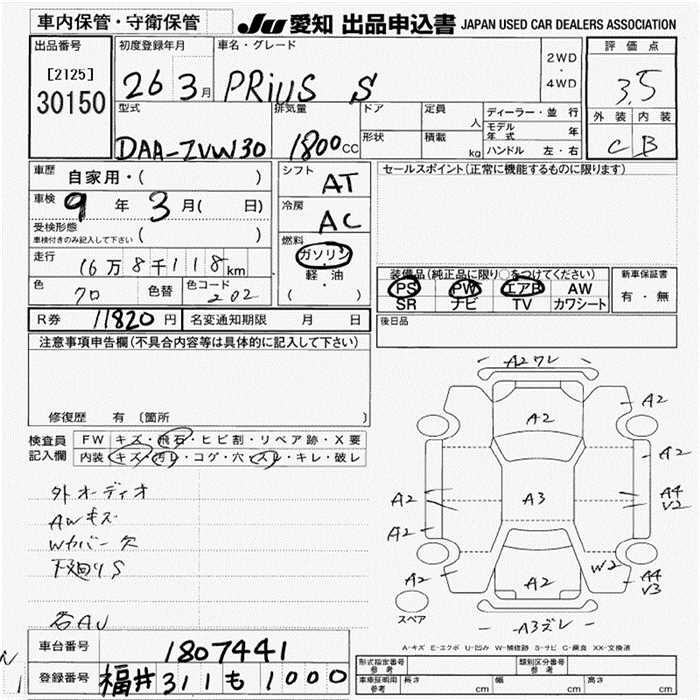 車内保管・守衛保管
Ju 愛知 出品申込書 JAPAN USED CAR DEALERS ASSOCIATION
出品番号
[2125]
30150
初度登録年月
26 3月
車名・グレード
PRiUS S
2WD
・
4WD
評価点
3.5
外装 内装
C B
型式
DAA-ZVW30
排気量
1800cc
ドア
形状
定員
人
積載
kg
ディーラー・並行
モデル年式 年
ハンドル 左・右
車歴
自家用・( )
車検
9年 3月( 日)
受検形態
車検付きのみ記入して下さい ( )
走行
16万8千118km
色
クロ
色替
色コード
202
シフト
AT
冷房
AC
燃料
ガソリン
軽・油
( ・ )
セールスポイント(正常に機能するものに限ります)
装備品(純正品に限り○をつけてください)
PS PW エアB AW
SR ナビ TV カワシート
新車保証書
有・無
後日品
R券 11820円
名変通知期限 月 日
注意事項申告欄(不具合内容等は具体的に記入して下さい)
修復歴 有 〔箇所 〕
検査員記入欄
FW キズ・飛石・ヒビ割・リペア跡・X要
内装 キズ・汚レ・コゲ・穴・スレ・キレ・破レ
外オーディオ
AWキズ
Wカバー欠
下廻りS
各AU
A2ワレ
A2
A2
A2
A3
A2
A4
V2
A2
A2
W2
A4
V3
A2
A3ズレ
スペア
A-キズ E-エクボ U-凹み W-補修跡 S-サビ C-腐食 XX-交換済
車台番号 1807441
登録番号 福井311も1000
形式指定番号 参考
類別区分番号 参考
車庫証明用 参考
長さ cm
幅 cm
高さ cm